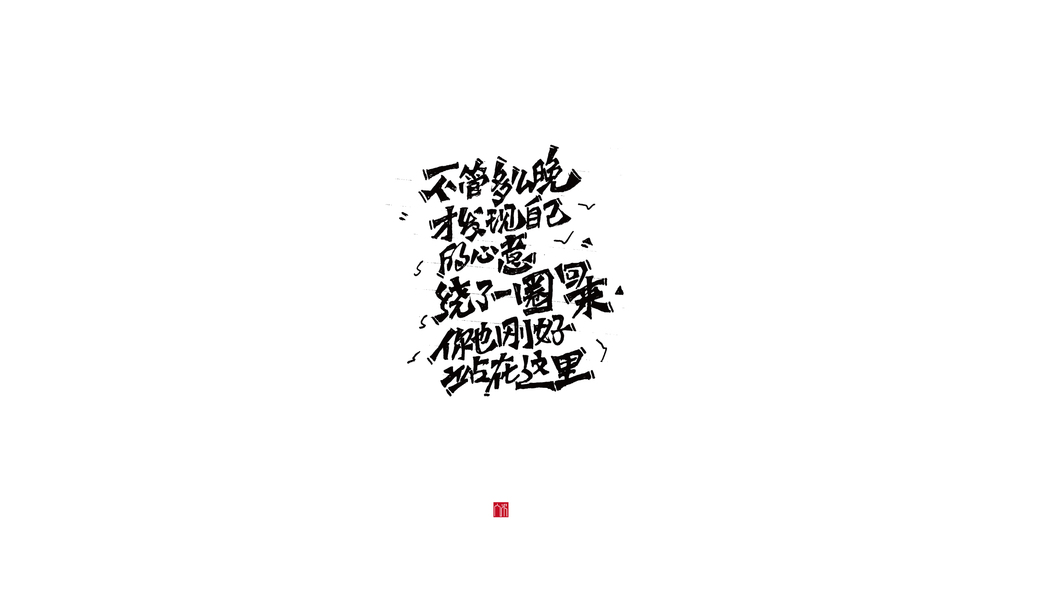 不管多么晚
才发现自己
的心意
绕了一圈回来
你也刚好
站在这里